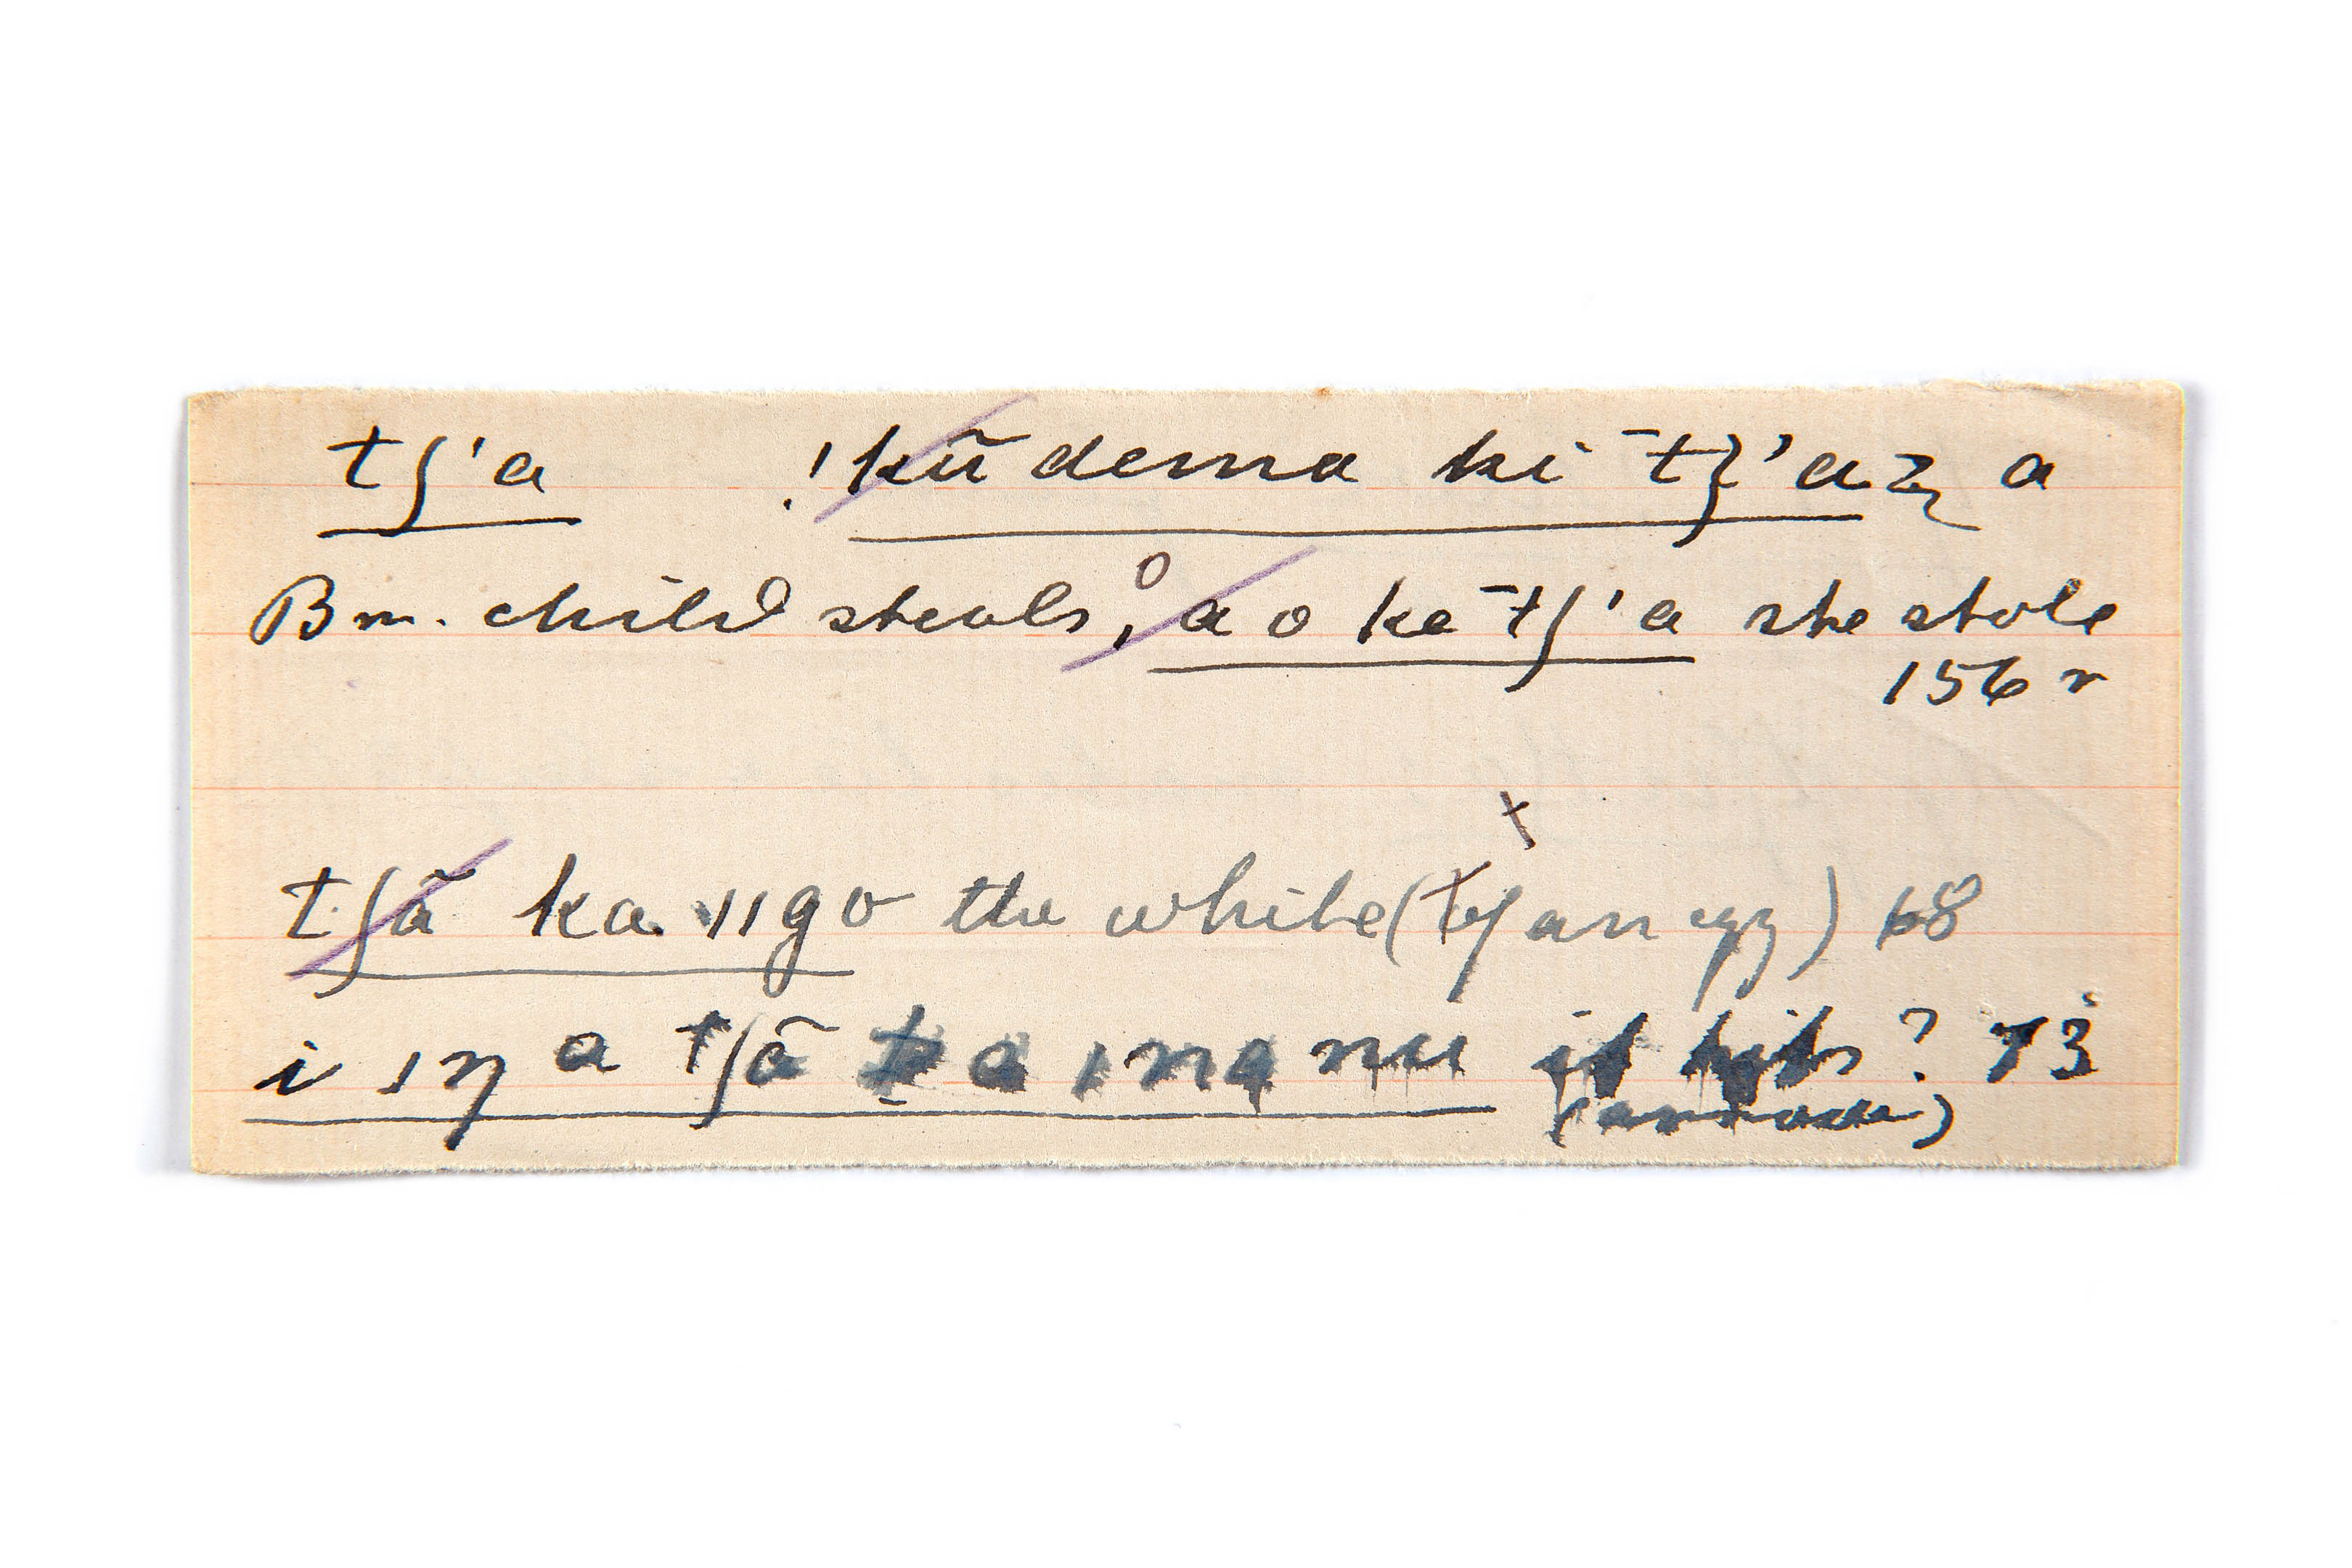 tʃ'a !kũdema ki tʒ'aʒa
Bm. child steals, ao ke tʃ'a she stole
156 r
tʃã ka ǁgo the white (of an egg) 68
i ıŋ a tʃã ta ınanu it hits? 73
(arrow)